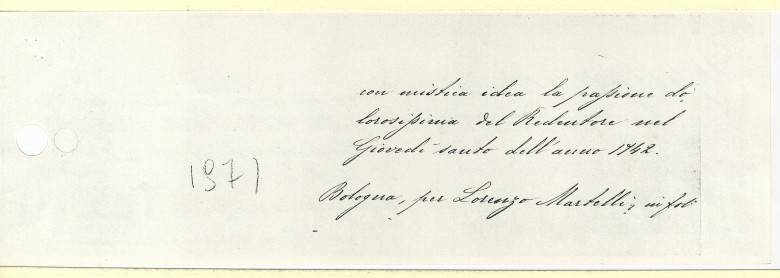 con mistica idea la passione do,
lorosissima del Redentore nel
Giovedì santo dell'anno 1742.
1971
Bologna, per Lorenzo Martelli; in fol